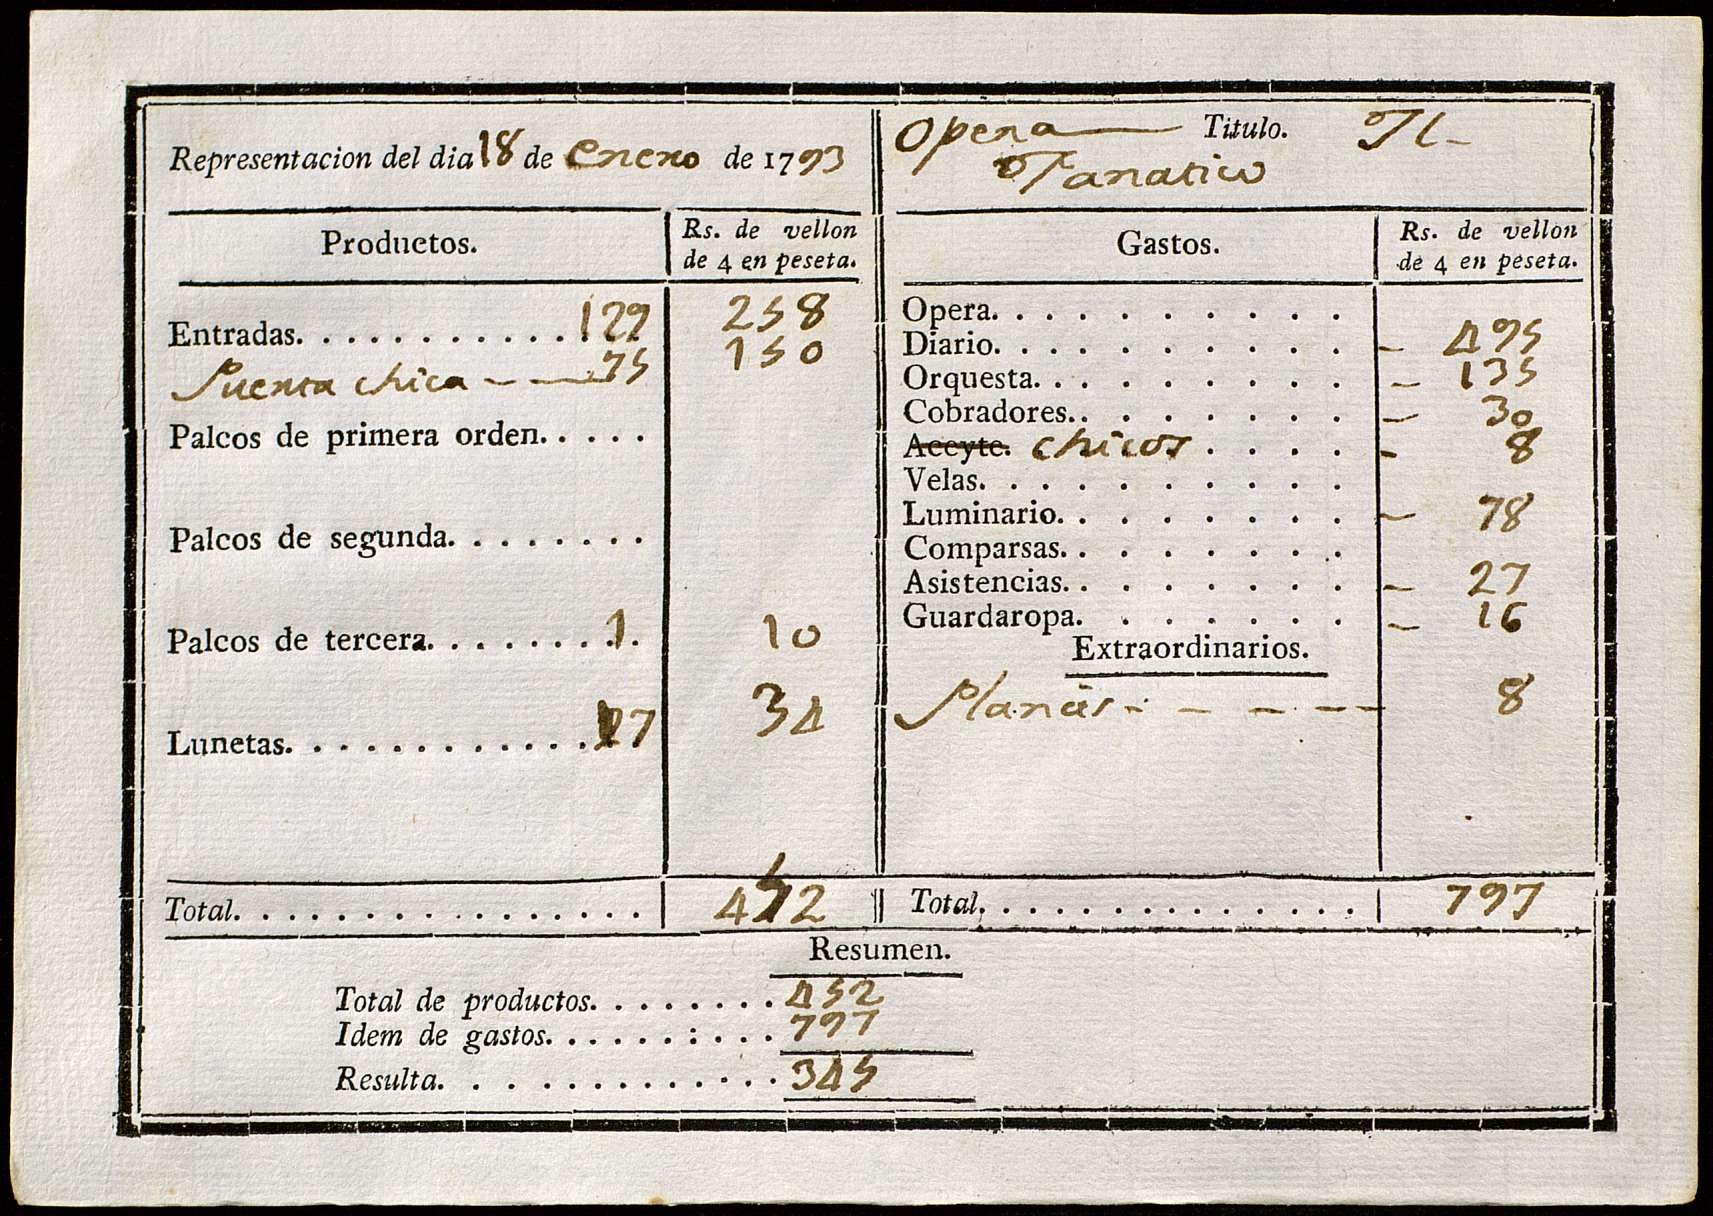 Representacion del dia 18 de enero de 1793
Opera Titulo. Il
Fanatico
Productos.
Rs. de vellon
de 4 en peseta.
Entradas. . . . . . . . . . . 129 258
Puerta chica 75 150
Palcos de primera orden. . . . .
Palcos de segunda. . . . . . . .
Palcos de tercera. . . . . . . . 1. 10
Lunetas. . . . . . . . . . . . 17 34
Total. . . . . . . . . . . . . . . . 452
Gastos.
Rs. de vellon
de 4 en peseta.
Opera. . . . . . . . . .
Diario. . . . . . . . . . 495
Orquesta. . . . . . . . . 135
Cobradores. . . . . . . . 30
Aceyte. chicos . . . . 8
Velas. . . . . . . . . .
Luminario. . . . . . . . 78
Comparsas. . . . . . . .
Asistencias. . . . . . . . 27
Guardaropa. . . . . . . 16
Extraordinarios.
Planas 8
Total. . . . . . . . . . . . . . 797
Resumen.
Total de productos. . . . . . . . 452
Idem de gastos. . . . . . : . . . 797
Resulta. . . . . . . . . . . . . 345